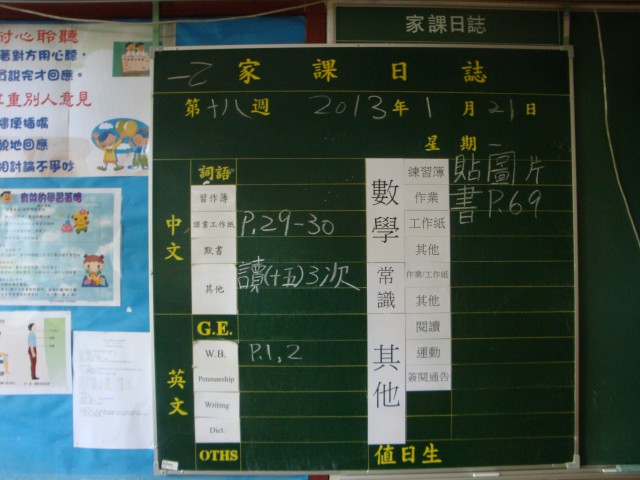 家課日誌
一乙 家課日誌
第十八週 2013年1月21日
星期一
中文
詞語
習作簿
課業工作紙 P.29-30
默書
其他 讀(十五)3次
英文
G.E.
W.B. P.1,2
Penmanship
Writing
Dict.
OTHS
數學
練習簿 貼圖片
作業 書P.69
工作紙
其他
常識
作業/工作紙
其他
其他
閱讀
運動
簽閱通告
值日生
耐心聆聽
對方用心聽，
說完才回應。
重別人意見
便插嘴
貌地回應
相討論不爭吵